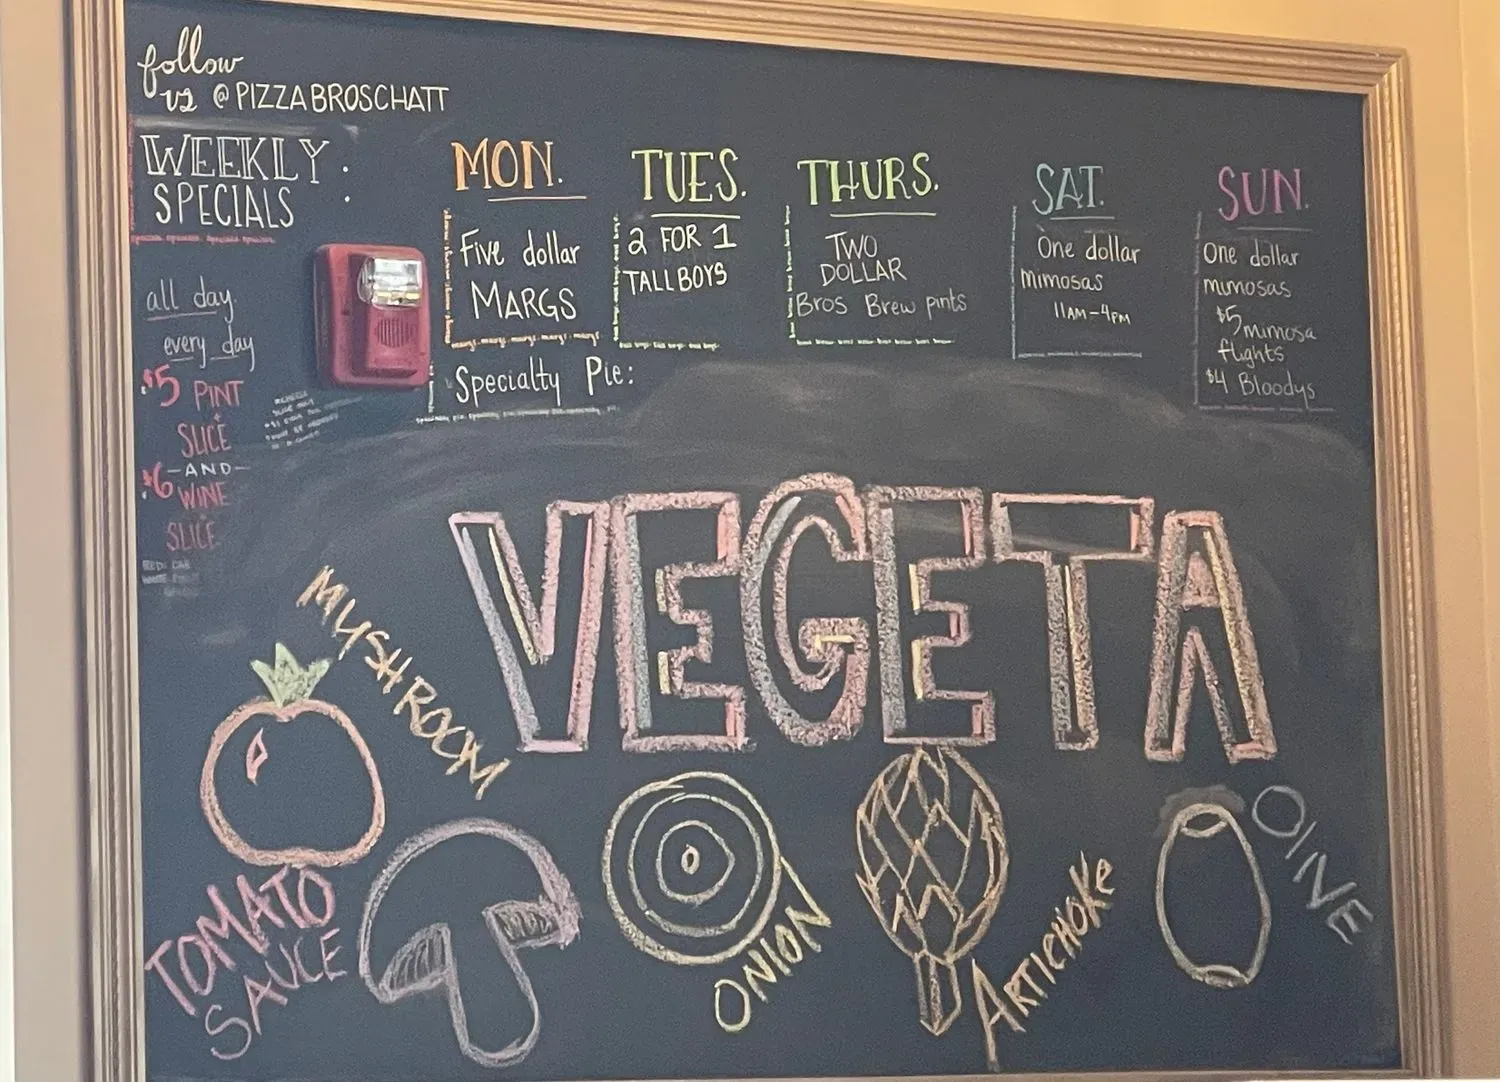 follow
us @PIZZABROSCHATT
WEEKLY
SPECIALS :
all day
every day
$5 PINT
+
SLICE
-AND-
$6 WINE
+
SLICE
MON.
Five dollar
MARGS
TUES.
2 FOR 1
TALLBOYS
THURS.
TWO
DOLLAR
Bros Brew pints
SAT.
One dollar
mimosas
11AM-4PM
SUN.
One dollar
mimosas
$5 mimosa
flights
$4 Bloodys
Specialty Pie:
VEGETA
TOMATO
SAUCE
MUSHROOM
ONION
ARTICHOKE
OLIVE